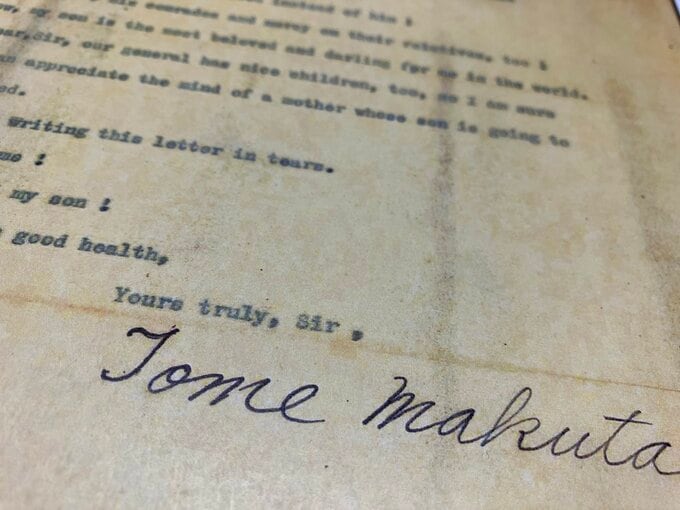 instead of him !
his comrades and mercy on their relatives, too !
my son is the most beloved and darling for me in the world.
Sir, our general has nice children, too, so I am sure
appreciate the mind of a mother whose son is going to
ed.
writing this letter in tears.
me !
my son !
good health,
Yours truly, Sir ,
Tome Makuta